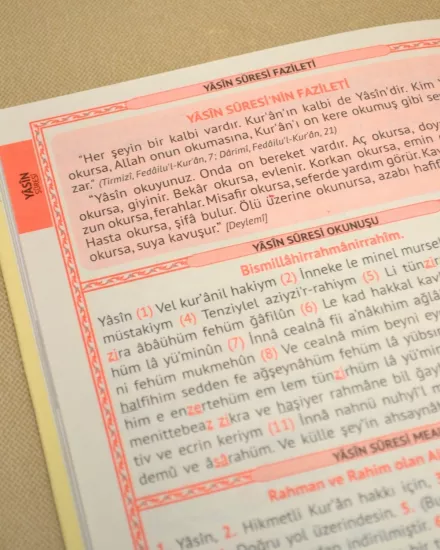 YÂSÎN SÛRESİ FAZİLETİ
YÂSİN SÛRESİ'NİN FAZİLETİ
"Her şeyin bir kalbi vardır. Kur'ân'ın kalbi de Yâsîn'dir. Kim
okursa, Allah onun okumasına, Kur'ân'ı on kere okumuş gibi se
zar." (Tirmizî, Fedâilu'l-Kur'ân, 7; Dârimî, Fedâilu'l-Kur'ân, 21)
"Yâsîn okuyunuz. Onda on bereket vardır. Aç okursa, doy
okursa, giyinir. Bekâr okursa, evlenir. Korkan okursa, emin
zun okursa, ferahlar. Misafir okursa, seferde yardım görür. Kay
Hasta okursa, şifâ bulur. Ölü üzerine okunursa, azabı hafif
okursa, suya kavuşur." [Deylemî]
YÂSÎN
SÛRESİ
YÂSÎN SÛRESİ OKUNUŞU
Bismillâhirrahmânirrahîm.
Yâsîn (1) Vel kur'ânil hakiym (2) İnneke le minel mursel
müstakiym (4) Tenziylel aziyzi'r-rahiym (5) Li tünzir
zira âbâühüm fehüm ğâfilûn (6) Le kad hakkal kav
hüm lâ yü'minûn (7) İnnâ cealnâ fiî a'nâkıhim ağlâ
ni fehüm mukmehûn (8) Ve cealnâ mim beyni eyd
halfihim sedden fe ağşeynâhüm fehüm lâ yübsı
him e enzertehüm em lem tünzirhüm lâ yü'min
menittebeaz zikra ve haşiyer rahmâne bil ğayb
tiv ve ecrin keriym (11) İnnâ nahnü nuhyi'l m
demû ve âsârahüm. Ve külle şey'in ahsaynâ
YÂSÎN SÛRESİ MEA
Rahman ve Rahim olan Al
1. Yâsîn, 2. Hikmetli Kur'ân hakkı için, 3.
Doğru yol üzerindesin. 5. (Bu
indirilmiştir. 6